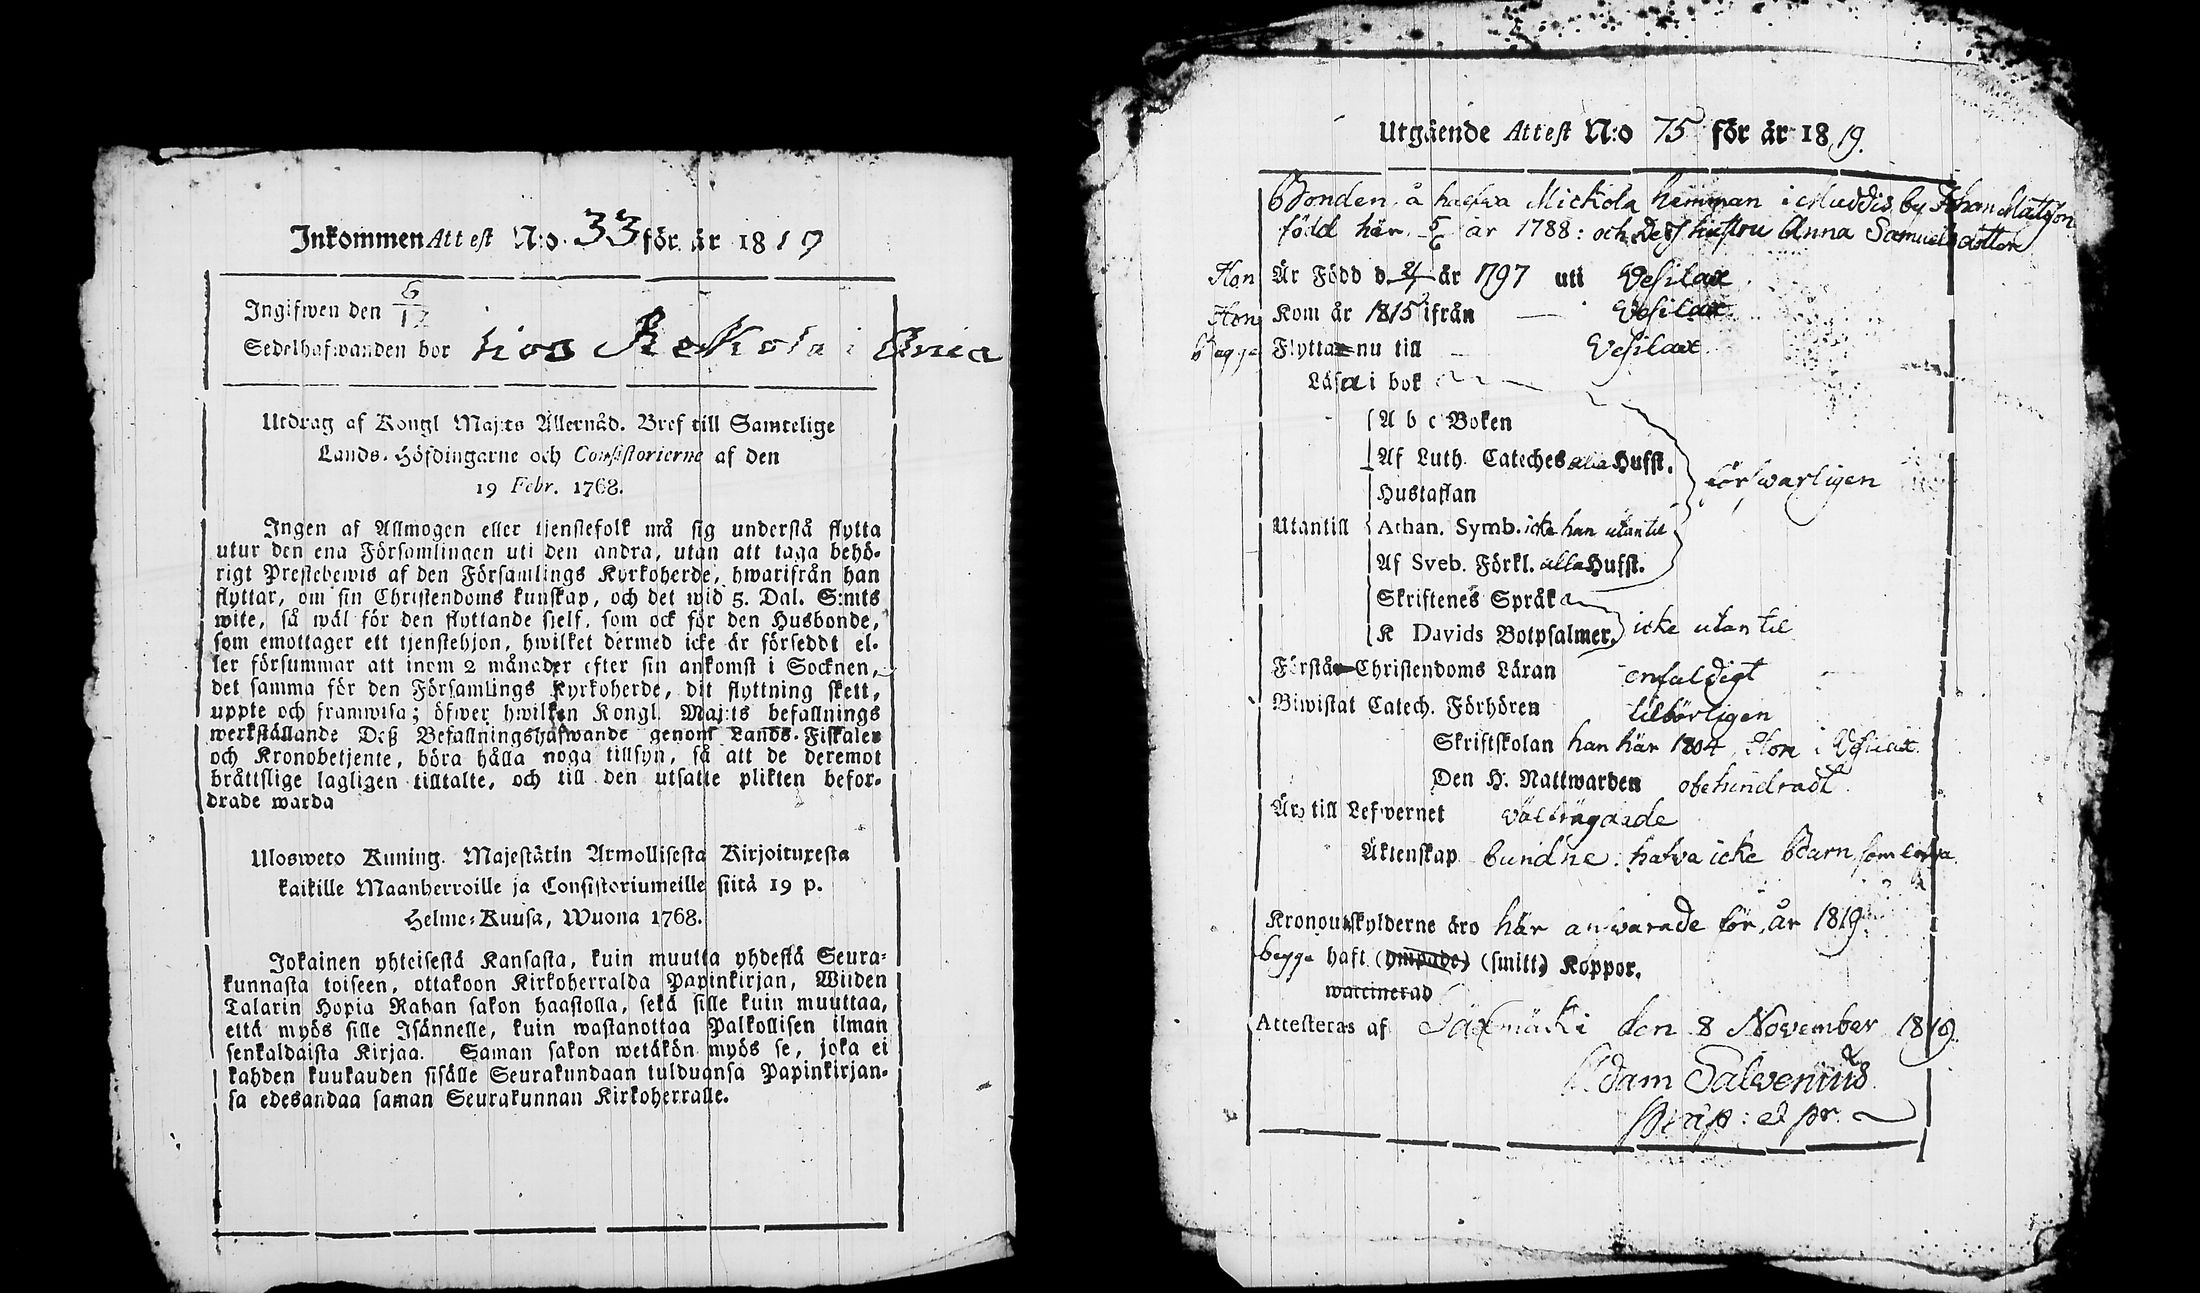 Inkommen Attest N:o. 33 för år 1819
Ingifwen den 6/12
Sedelhafwanden bor hos Rekola i Ania
Utdrag af Kongl Maj:ts Allernåd. Bref till Samtelige
Lands-Höfdingarne och Consistorierne af den
19 Febr. 1768.
Ingen af Allmogen eller tjenstefolk må sig understå flytta
utur den ena Församlingen uti den andra, utan att taga behö-
rigt Prestebewis af den Församlings Kyrkoherde, hwarifrån han
flyttar, om sin Christendoms kunskap, och det wid 5. Dal. S:mts
wite, så wäl för den flyttande sjelf, som ock för den Husbonde,
som emottager ett tjenstehjon, hwilket dermed icke är förseddt el-
ler försummar att inom 2 månader efter sin ankomst i Socknen,
det samma för den Församlings Kyrkoherde, dit flyttning skett,
uppte och framwisa; öfwer hwilken Kongl. Maj:ts befallnings
werkställande Deß Befallningshafwande genom Lands-Fiskaler
och Kronobetjente, böra hålla noga tillsyn, så att de deremot
bråttslige lagligen tilltalte, och till den utsatte plikten befor-
drade warda
Ulosweto Kuning. Majestätin Armollisesta Kirjoituxesta
kaikille Maanherroille ja Consistoriumeille siitä 19 p.
Helme-Kuusa, Wuona 1768.
Jokainen yhteisestä Kansasta, kuin muutta yhdestä Seura-
kunnasta toiseen, ottakoon Kirkoherralda Papinkirjan, Wiiden
Talarin Hopia Rahan sakon haastolla, sekä sille kuin muuttaa,
että myös sille Isännelle, kuin wastanottaa Palkollisen ilman
senkaldaista Kirjaa. Saman sakon wetäkön myös se, joka ei
kahden kuukauden sisälle Seurakundaan tulduansa Papinkirjan-
sa edesandaa saman Seurakunnan Kirkoherralle.
Utgående Attest N:o 75 för år 1819.
Bonden å halfva Mickola hemman i Muddis by Johan Matsson
född här 5/6 år 1788: och Dess hustru Anna Samuelsdotter
Hon Är Född d. år 1797 uti Vesilax
Hon Kom år 1815 ifrån Vesilax
begge Flytta nu till Vesilax
Läsa i bok
A b c Boken
Af Luth. Cateches alla Hufst.
Hustaflan
försvarligen
Utantill Athan. Symb. icke han utantil
Af Sveb. Förkl. alla Hufst.
Skriftenes Språk
K Davids Botpsalmer. icke utantil
Förstå Christendoms Läran enfaldigt
Biwistat Catech. Förhören tilbörligen
Skriftskolan han här 1804, Hon i Vesilax.
Den H. Nattwarden obehindradt.
Äro till Lefwernet välfrägdade
Äktenskap bundne. hafva icke Barn som lefva.
Kronoutskylderne äro här answarade för år 1819.
begge haft (ympade) (smitt) Koppor.
waccinerad
Attesteras af Säxmäki den 8 November 1819.
Adam Salvenius
Præp: et pr.